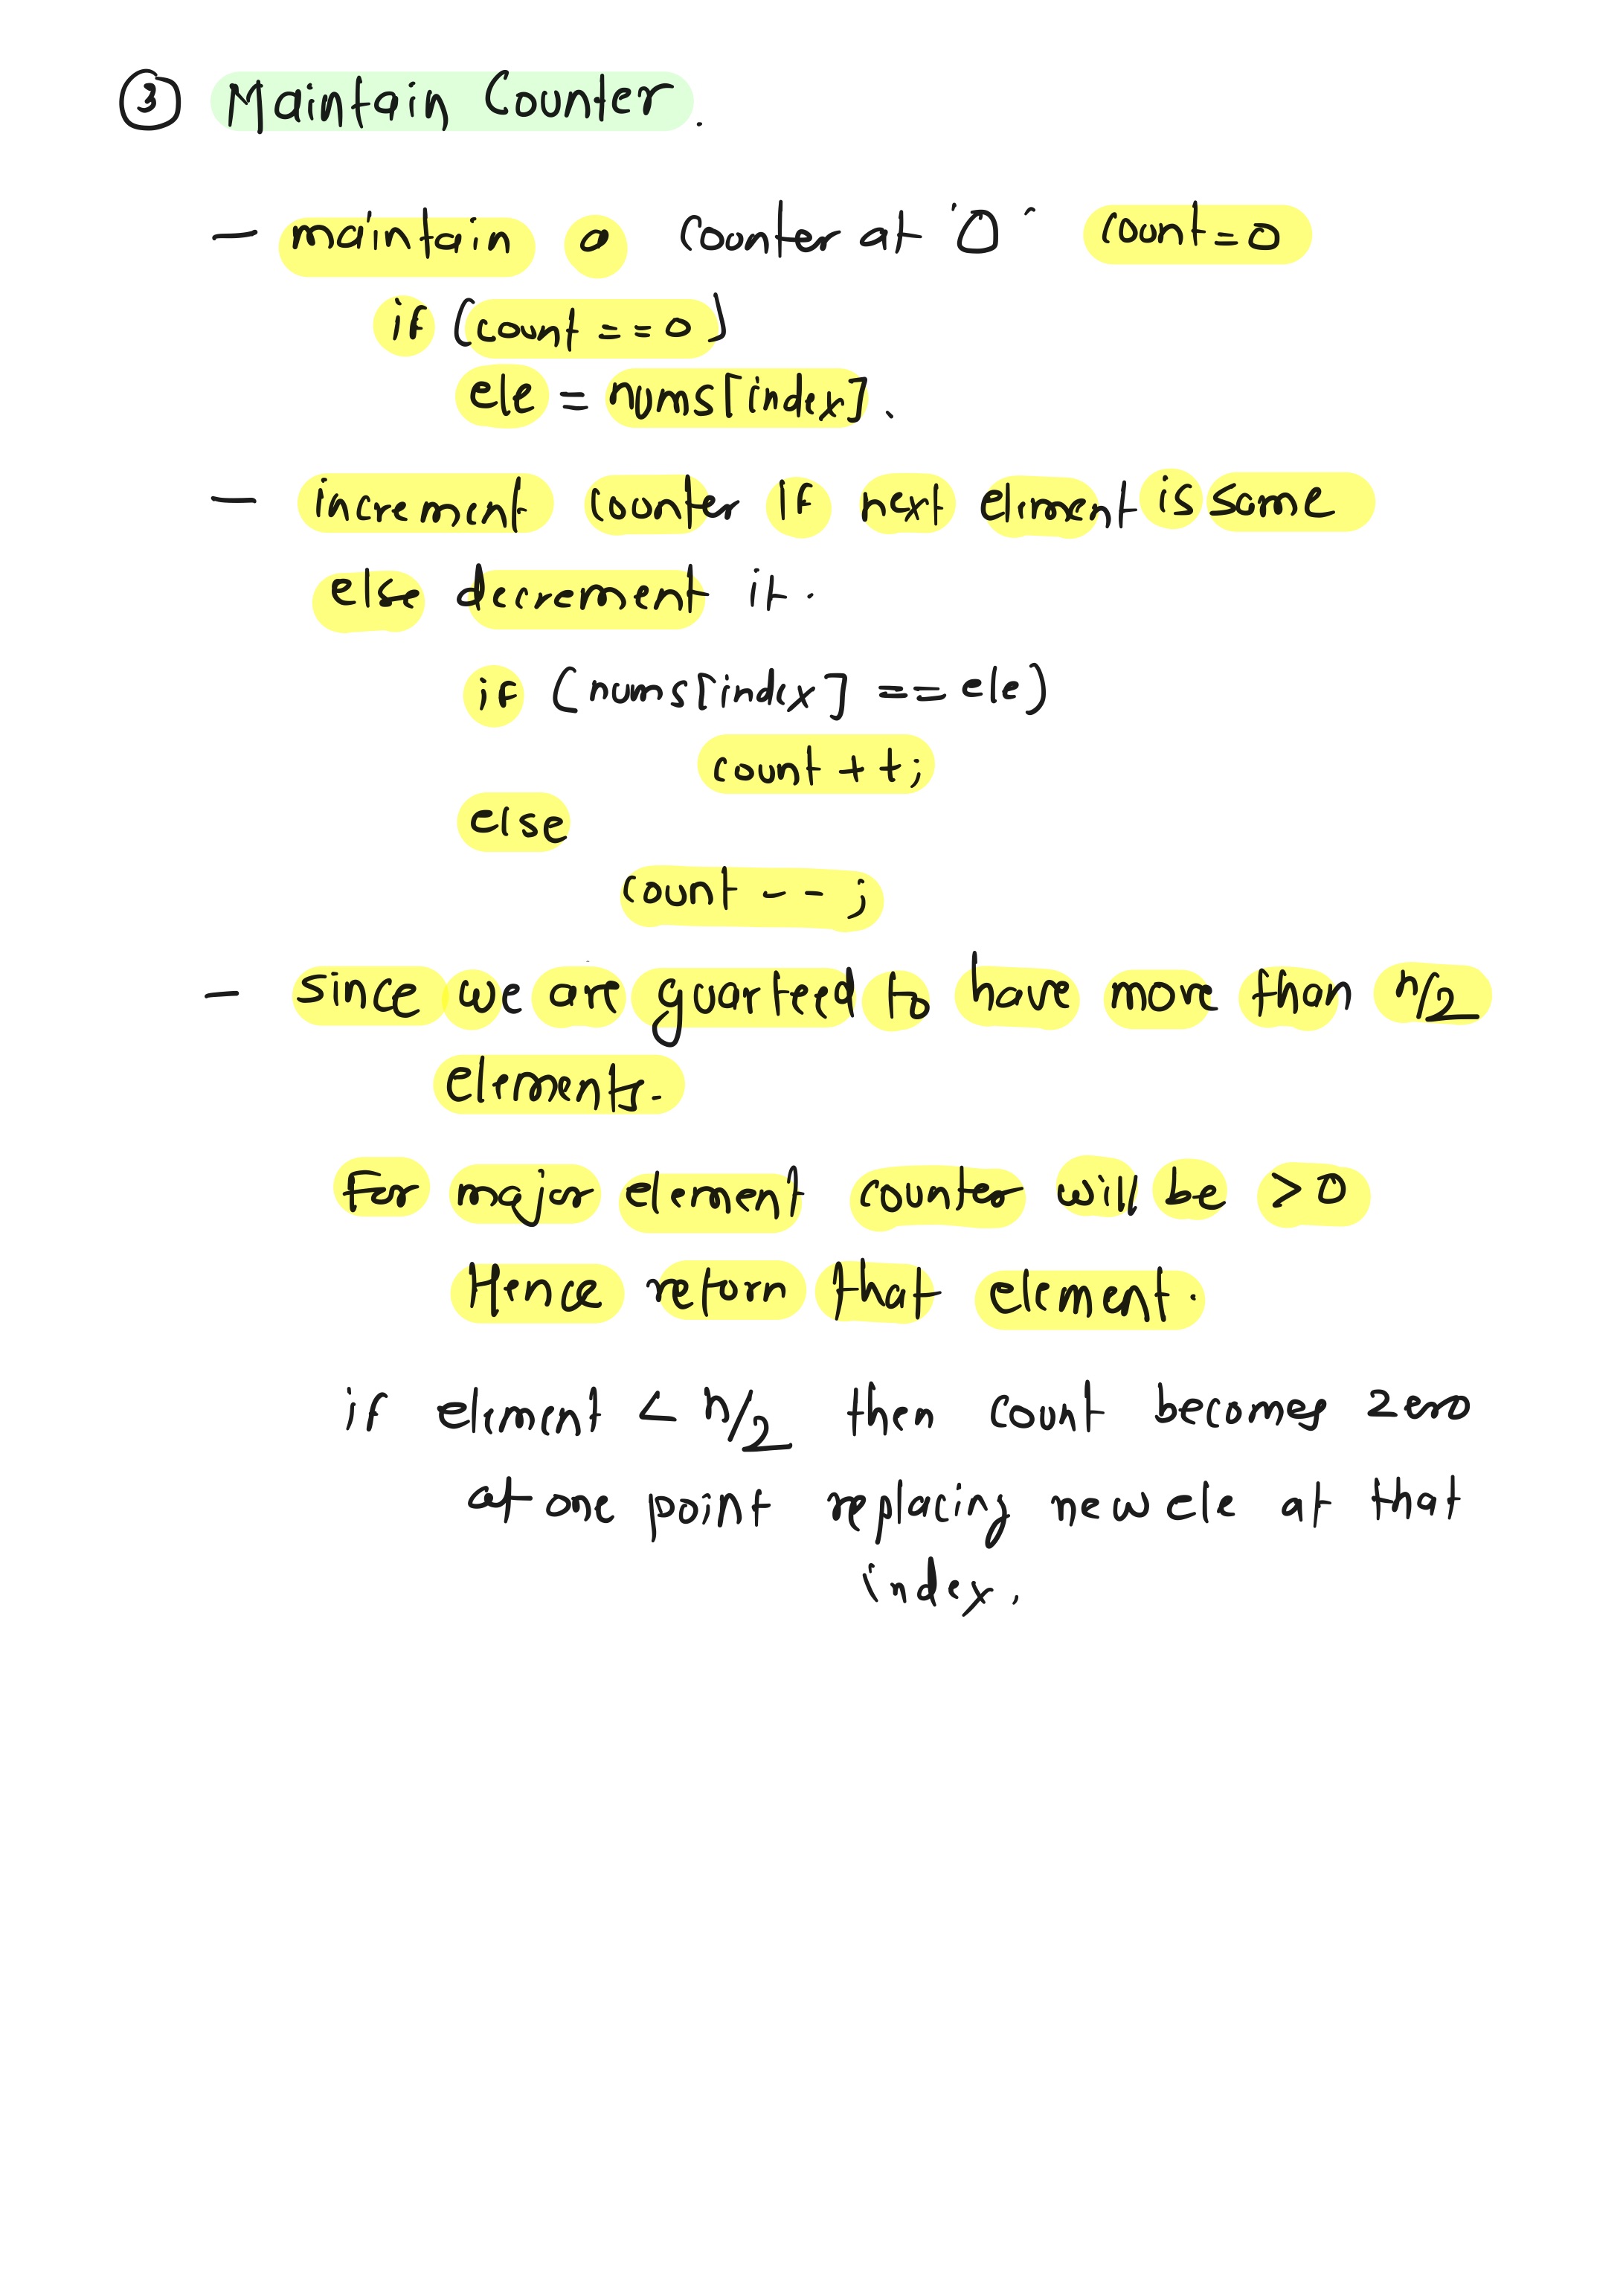 ③ Maintain Counter.
— maintain a counter at '0' count = 0
if (count == 0)
ele = nums[index].
— increment counter if next element is same
else decrement it.
if (nums[index] == ele)
count ++;
else
count -- ;
— since we are guarteed to have more than n/2
elements.
For major element counter will be > 0
Hence return that element.
if element < n/2 then count becomes zero
at one point replacing new ele at that
index.